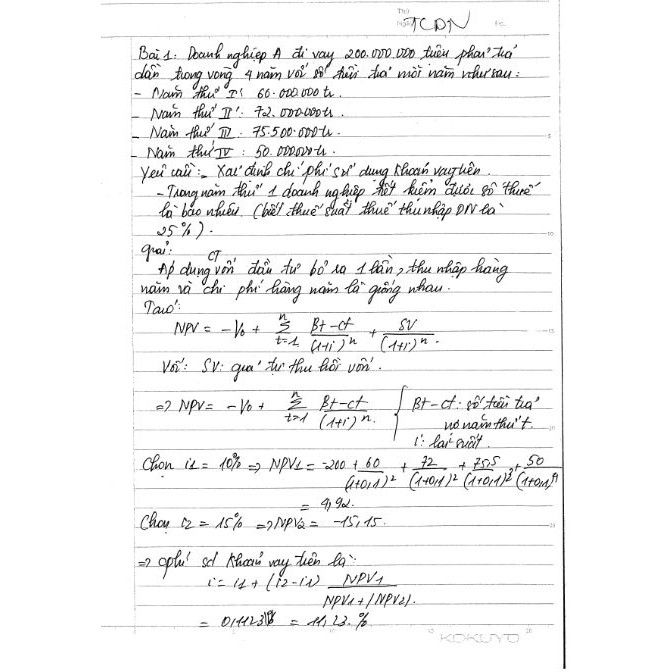 TCDN
Bài 1: Doanh nghiệp A đi vay 200.000.000 triệu phải trả
dần trong vòng 4 năm với số tiền trả mỗi năm như sau:
- Năm thứ I: 60.000.000tr.
- Năm thứ II: 72.000.000tr.
- Năm thứ III: 75.500.000tr.
- Năm thứ IV: 50.000000tr.
Yêu cầu: - Xác định chi phí sử dụng khoản vay trên.
- Trong năm thứ 1 doanh nghiệp tiết kiệm được số thuế
là bao nhiêu. (biết thuế suất thuế thu nhập DN là
25%).
Giải:
CT
Áp dụng vốn đầu tư bỏ ra 1 lần, thu nhập hàng
năm và chi phí hàng năm là giống nhau.
Ta có:
NPV = -V0 + n∑t=1 Bt-Ct/(1+i)^n + SV/(1+i)^n.
Với: SV: giá trị thu hồi vốn.
=> NPV = -V0 + n∑t=1 Bt-Ct/(1+i)^n. { Bt-Ct: số tiền trả
nợ năm thứ t.
i: lãi suất.
Chọn i1 = 10% => NPV1 = -200 + 60/(1+0,1)^2 + 72/(1+0,1)^2 + 75,5/(1+0,1)^3 + 50/(1+0,1)^4
= 4,92.
Chọn i2 = 15% => NPV2 = -15,15.
=> Cphí sd khoản vay trên là:
i = i1 + (i2-i1) NPV1/NPV1+|NPV2|.
= 0,1123 = 11,23.%
KOKUYO